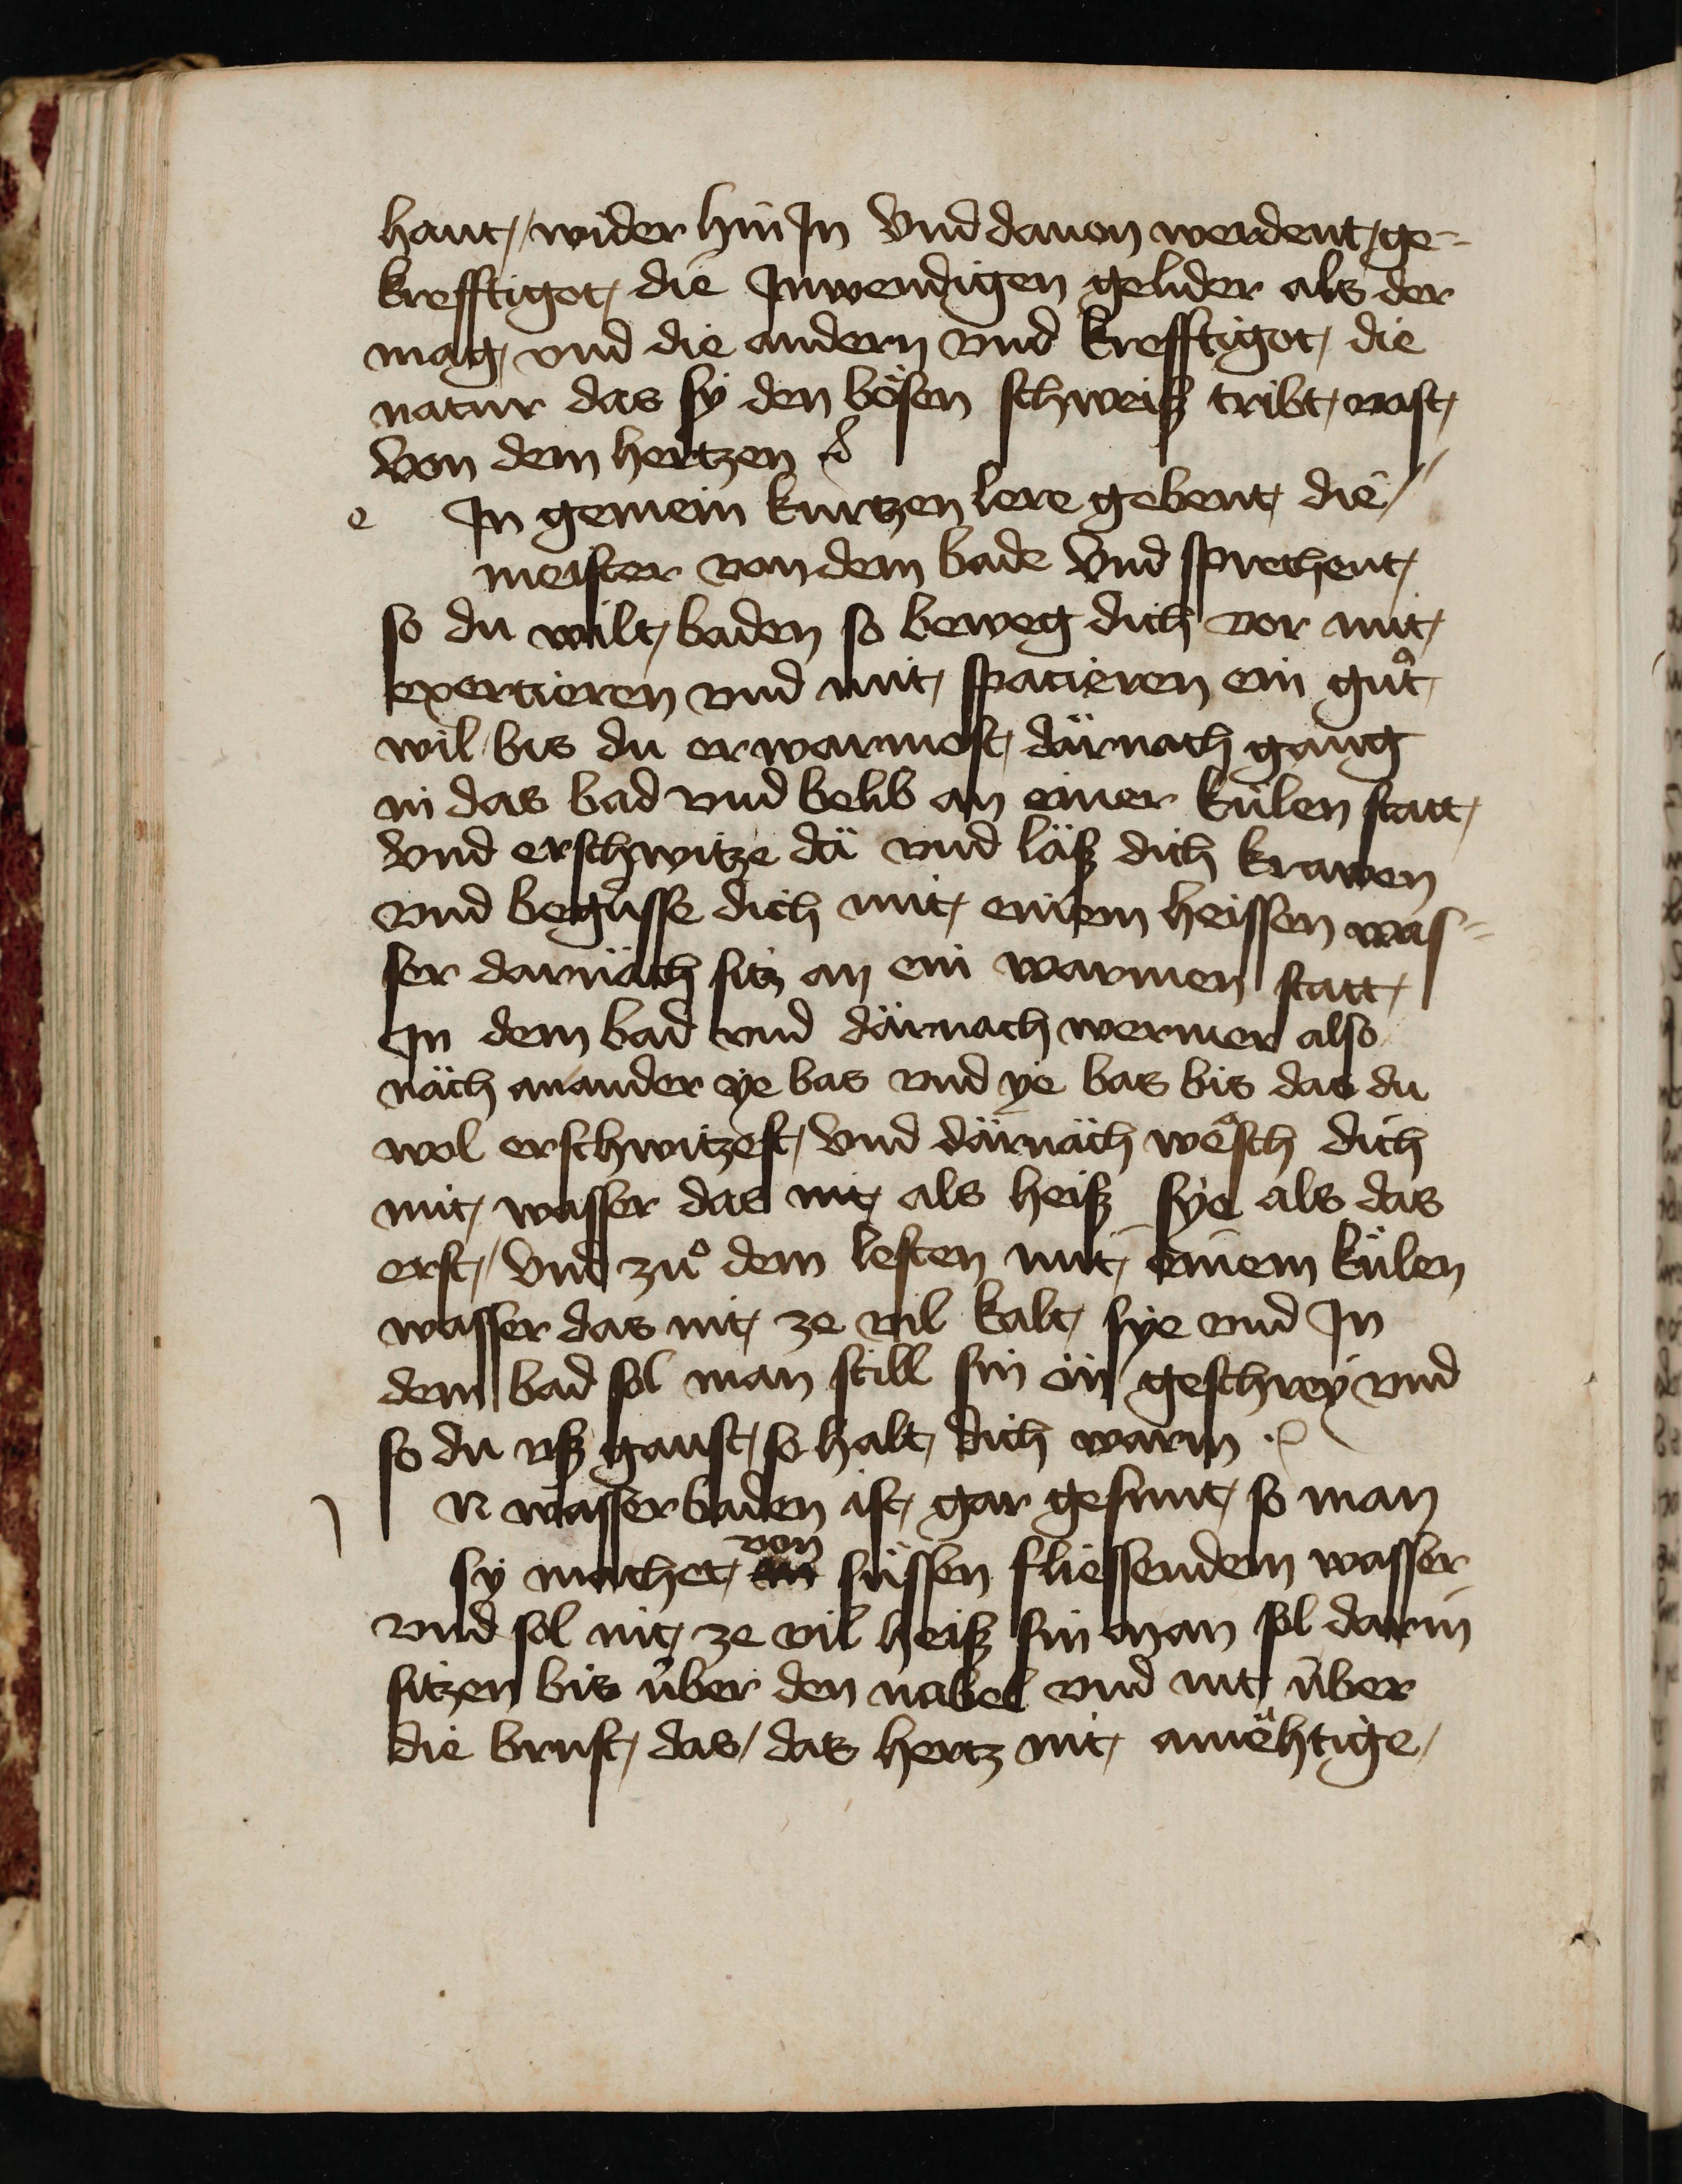 haut / wider hin In Vnd dauon werdent ge-
krefftigot die Inwendigen gelider als der
mag vnd die andern vnd krefftigot die
natur das sy den bösen schweisz tribt vast
Von dem hertzen
e In gemein kurtzen lere gebent die
meister von dem bade Vnd sprechent
so du wilt baden so beweg dich vor mit
exercieren vnd mit spacieren ein guͦt
wil bis du erwarmest därnach gang
in das bad vnd belib an einer külen statt
Vnd erschwitze dä vnd läsz dich krawen
vnd begüsse dich mit einem heissen was-
ser darnäch sitz an ein warmen statt
In dem bad vnd därnach wermer also
näch anander ye bas vnd ye bas bis das du
wol erschwitzest Vnd därnäch weͦsch dich
mit wasser das nit als heisz sye als das
erst / Vnd zuͦ dem lesten mit einem külen
wasser das nit ze vil kalt sye vnd In
dem bad sol man still sin än geschrey vnd
so du vsz gaust so halt dich warm
R wasserbaden ist gar gesunt so man
sy machet von süssen fliessendem wasser
vnd sol nit ze vil heisz sin man sol darin
sitzen bis über den nabel vnd nit über
die brust das / das hertz nit amëhtige